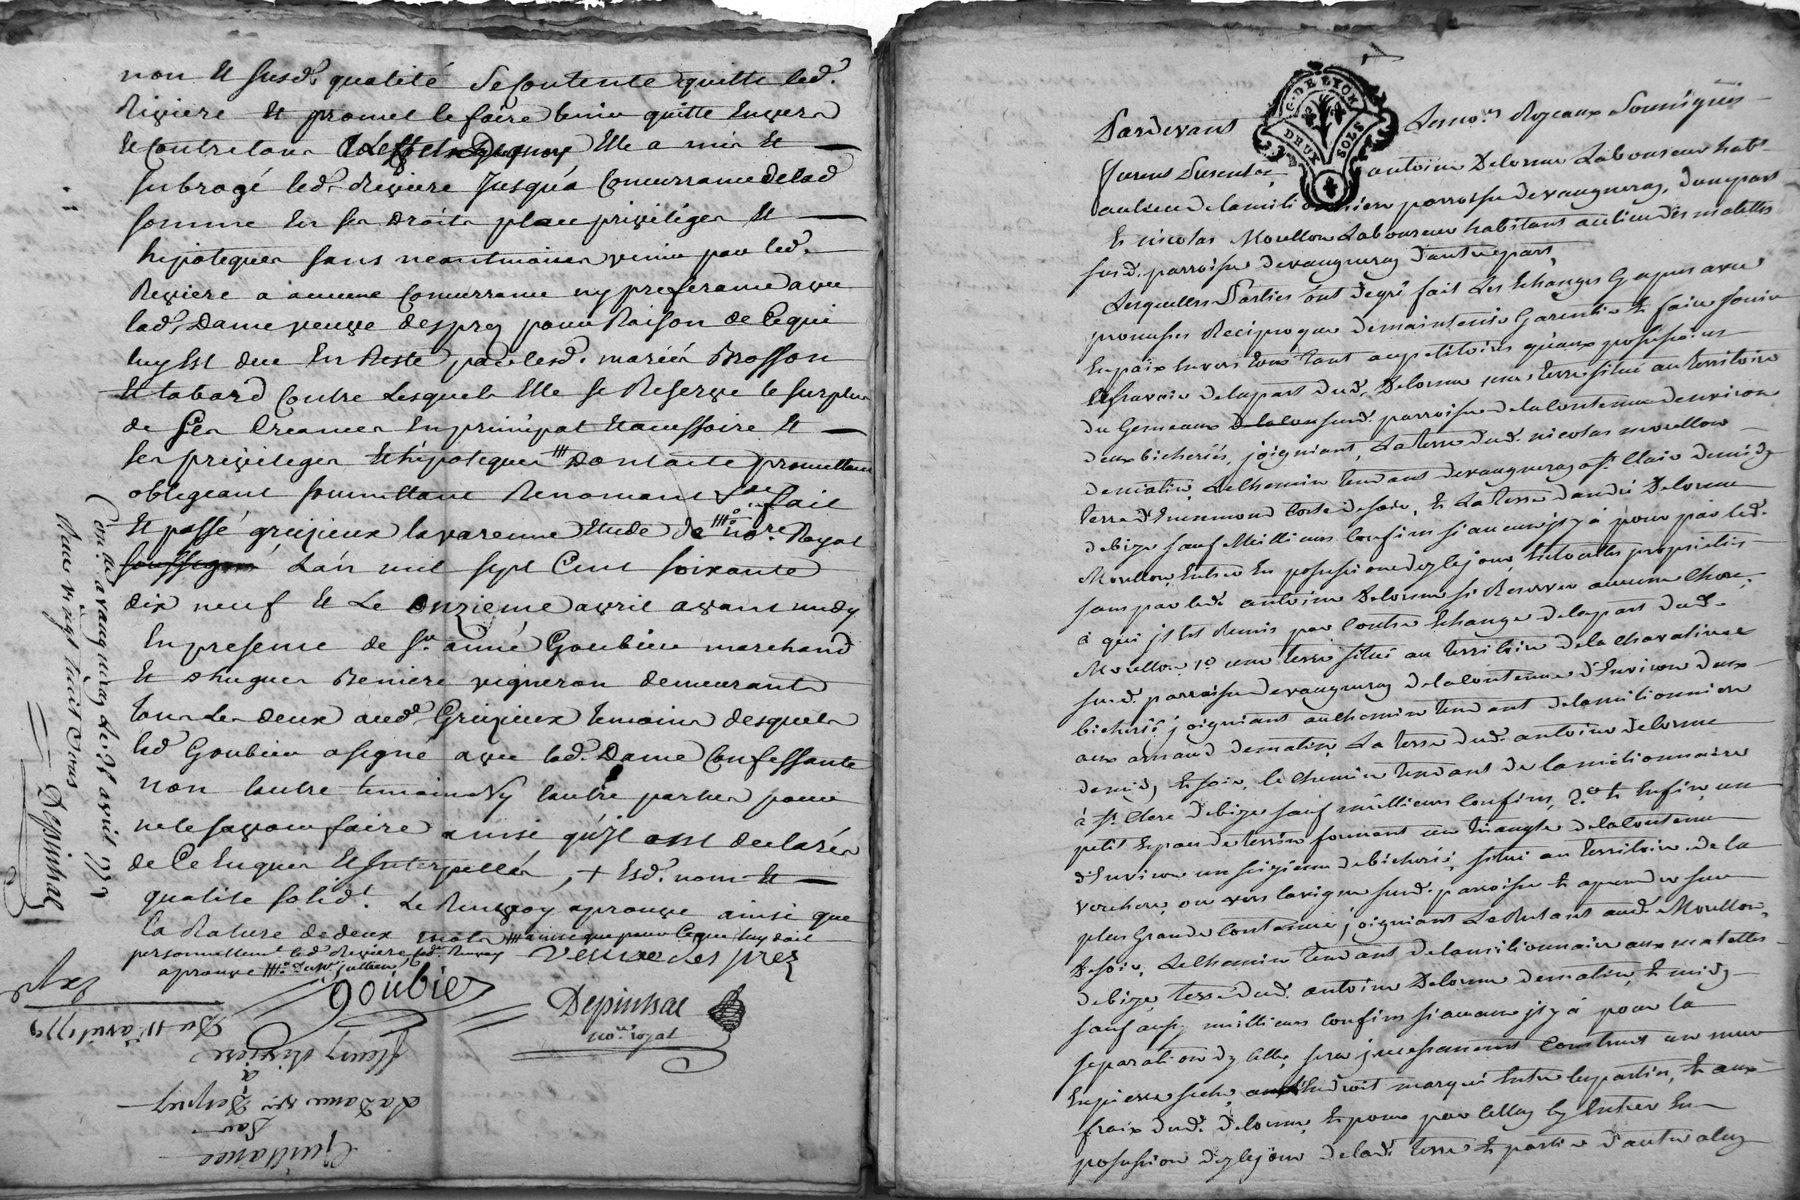 non et susd. qualité se contente quitte led.
Rivière et promet le faire tenir quitte envers
et contre tous elle a mis et
subrogé led. Rivière jusqu'a concurrance de lad
somme en ses droits place privilèges et
hipoteques sans neantmoins venir par led.
Rivière a aucune concurrance ny preferance avec
lad. Dame veuve desprez pour raison de ce qui
luy est due en reste par lesd. mariés Brosson
et tabard contre lesquels elle se reserve le surplus
de ses creances en principal et accessoire et
ses privileges et hipoteques Dont acte promettant
obligeant soumettant renonçant fait
et passé grezieux lavarenne etude de no.re Royal
soussigné L'an mil sept cent soixante
dix neuf et le onzieme avril avant midy
en presence de Sr. anné Goubier marchand
et hugues Beniere vigneron demeurants
tous les deux aud. Grézieux temoins desquels
led Goubier a signé avec lad. Dame confessante
non l'autre temoin ny l'autre partie pour
ne le savoir faire ainsi qu'ils ont declarés
de ce enquis et interpellés, + esd. nom et
qualité solid. Le renvoy aprouvé ainsi que
la rature de deux mots ainsi que pour ce que luy doit
personnellemt. led. Rivière
aprouvé
veuve des prez
goubier
Depinhac
nore. royal
Con.lé a vaugneray le 28 avril 1779
Reçu vingt huit sous
Depinhac
Exp.é
Du 11e avril 1779
Quittance
Par
La Dame ve. Desprez
a
fleury Rivière
G. DE LYON
DEUX SOLS
4
Pardevant Les no.res Royaux soussignés
furent presents antoine Delorme Laboureur habt.
au lieu de la milionniere parroisse de vaugneray, d'une part
Et nicolas Moullon Laboureur habitant au lieu des matelles
susd. parroisse de vaugneray d'autre part,
Lesquelles Parties ont de gré fait les echanges cy apres avec
promesses Reciproque de maintenir Garentir et faire jouir
en paix envers tous tant au petitoires qu'aux possessoires
Scavoir de la part dud. Delorme une terre situé au territoire
du Gemeaux susd. parroisse de la contenue d'environ
deux bicherées, joignant, La terre dud. nicolas moullon
de matin, Le chemin tendant de vaugneray a St. Clair de midy
terre d'enemond coste de soir, et La terre d'andré Delorme
de bize sauf meilleurs confins si aucuns jl y à pour par led.
Moullon entrer en possession dez le jour,
sans par led. antoine Delorme se Reserver aucune chose,
à qui jl est Remis par contre echange de la part dud.
Moullon 1.o une terre situé au territoire de la chavatiere
susd. parroisse de vaugneray de la contenue d'Environ deux
bicherée joignant au chemin tendant de la milionniere
aux arnaud de matin, La terre dud. antoine delorme
de midy et soir, le chemin tendant de la milionnaire
à St. Clere de bize sauf meilleurs confins, 2.o et Enfin, un
petit Espau de terrein formant un triangle de la contenue
d'Environ un sixieme de bicherée, situé au territoire de la
verchere, ou vers la vigne susd. parroisse et a prendre sur
plus Grande contenue, joignant Le Restant aud. Moullon,
de soir, Le chemin tendant de la milionnaire aux matelles
de bize, terre dud. antoine Delorme de matin, et midy
sauf aussy meilleurs confins si aucuns jl y à pour la
separation d'y celle, sera jncessamment construit un mur
en pierre seche, a L'endroit marqué entre les parties, et aux
fraix dud. delorme, et pour par celluy cy entrer en
possession dez le jour de lad. terre et partie d'autre aluy